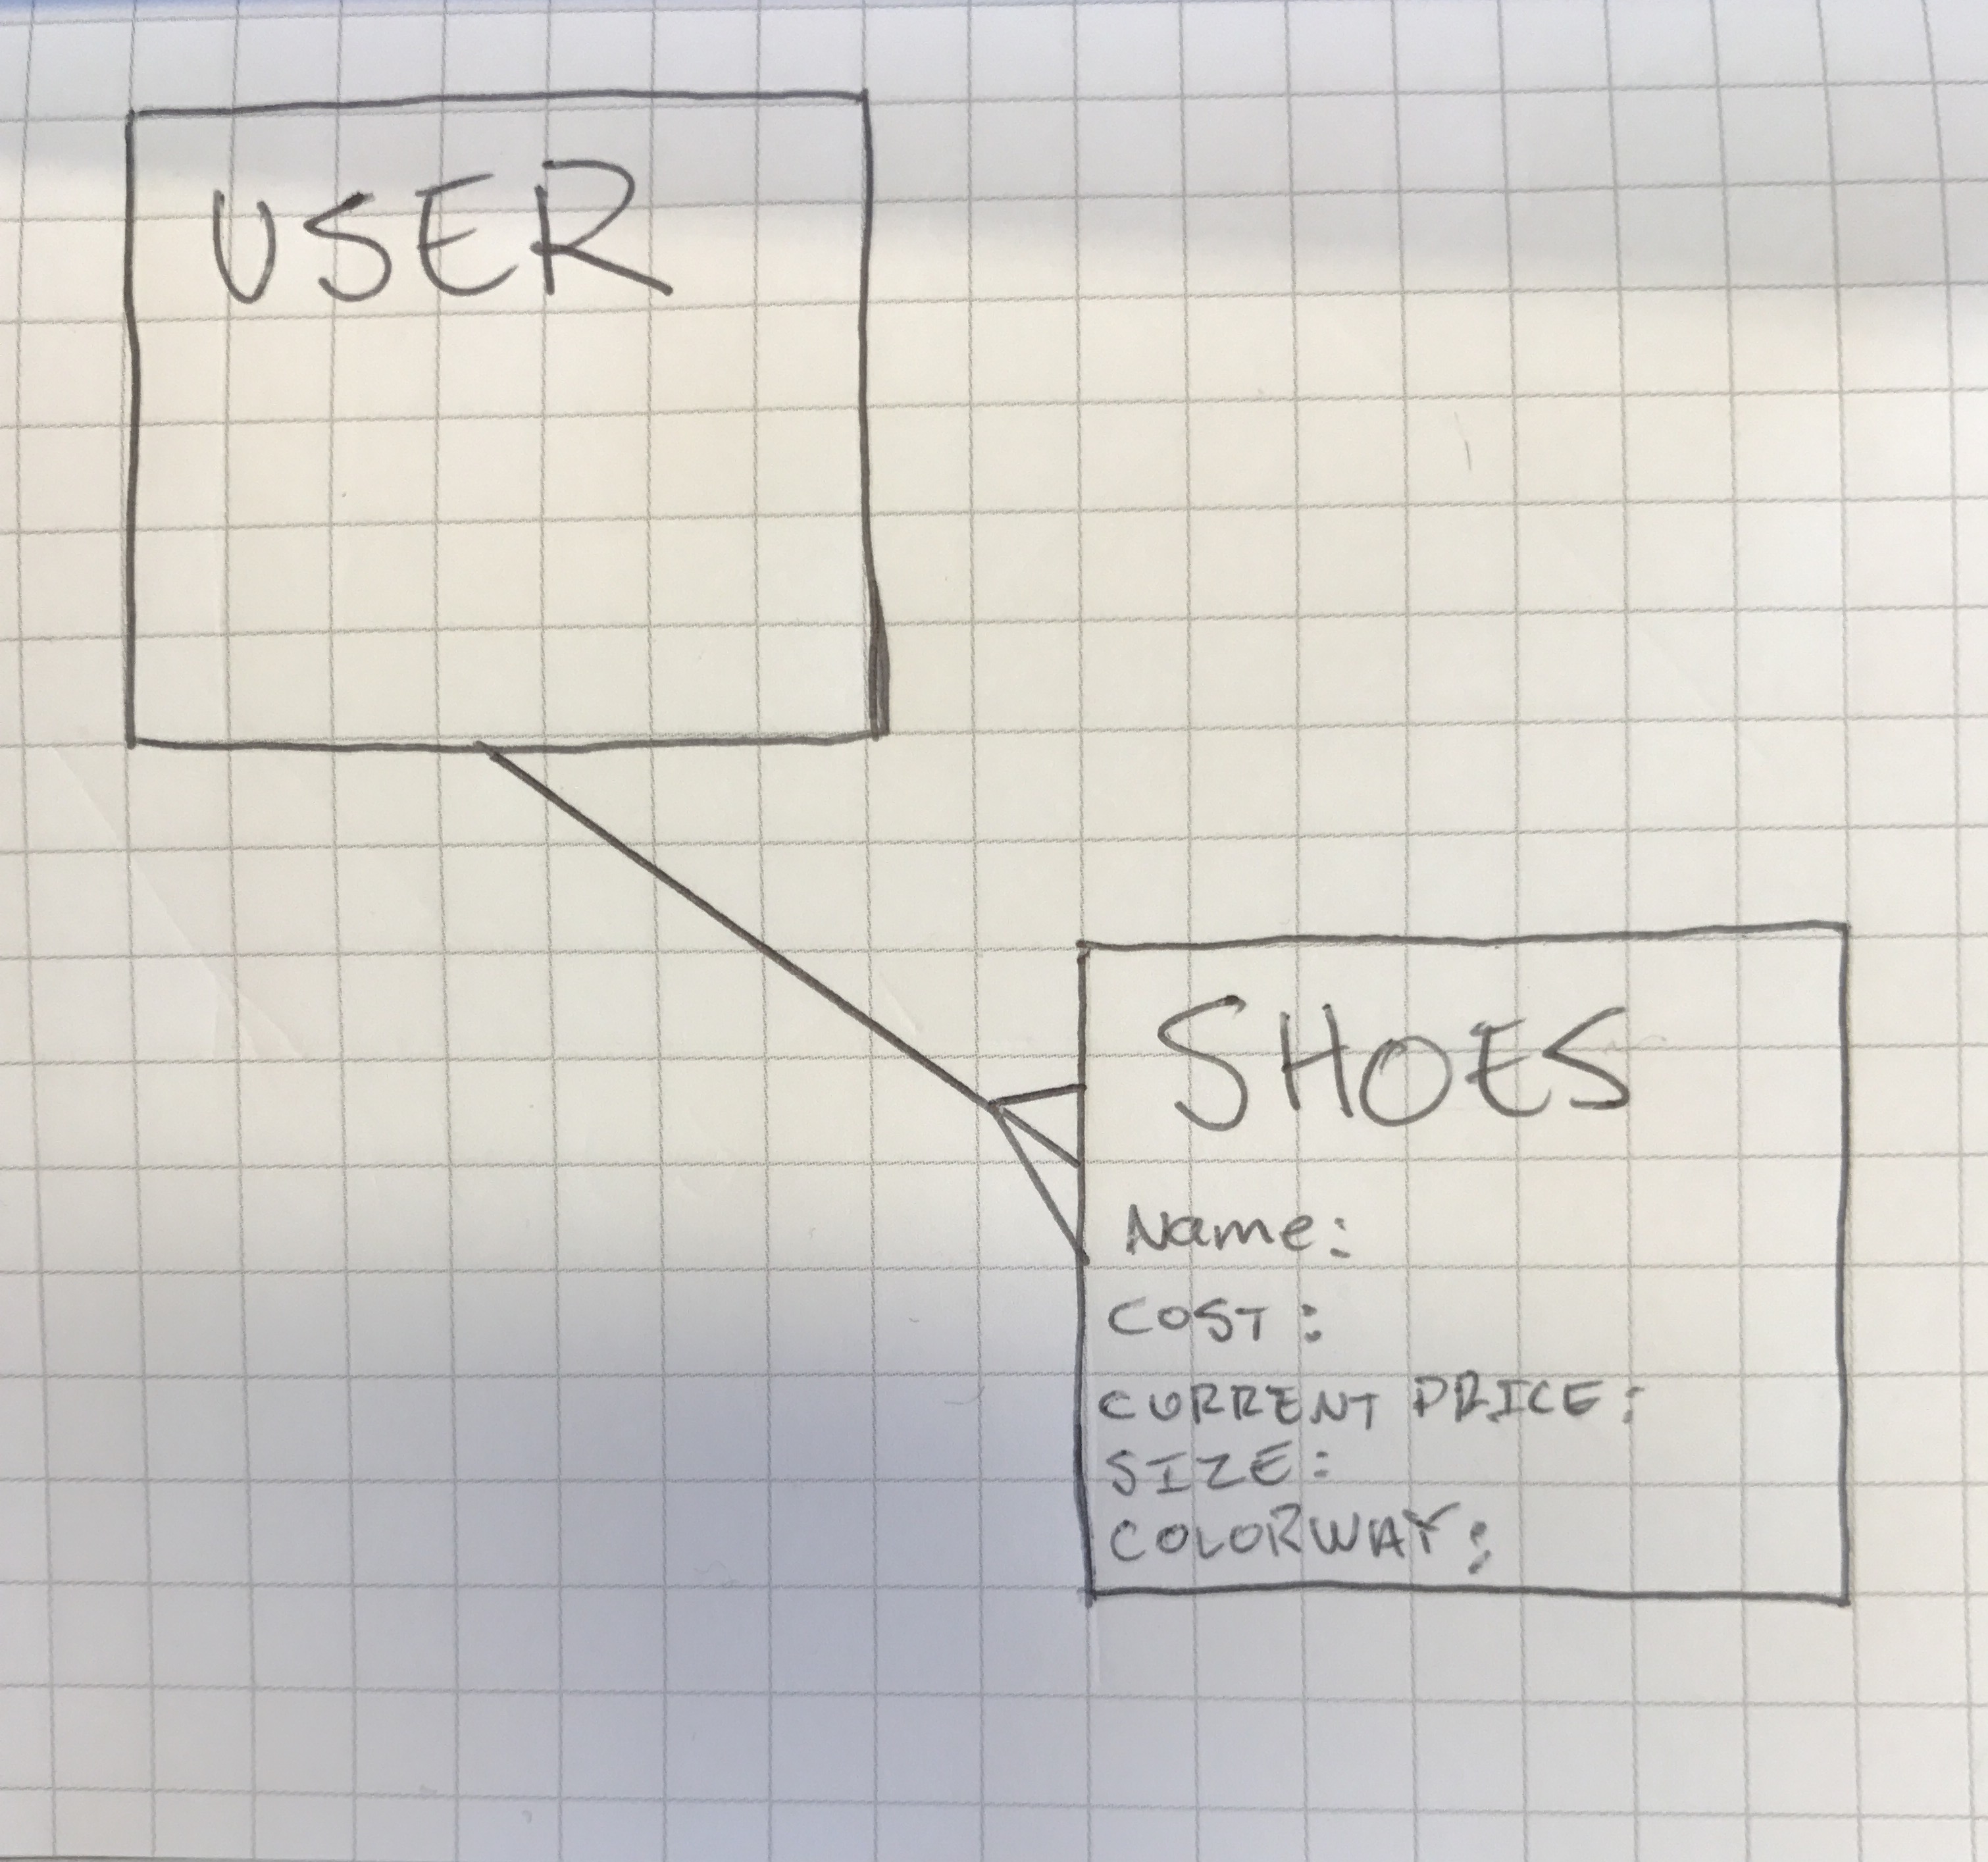 USER
SHOES
Name:
COST:
CURRENT PRICE:
SIZE:
COLORWAY: